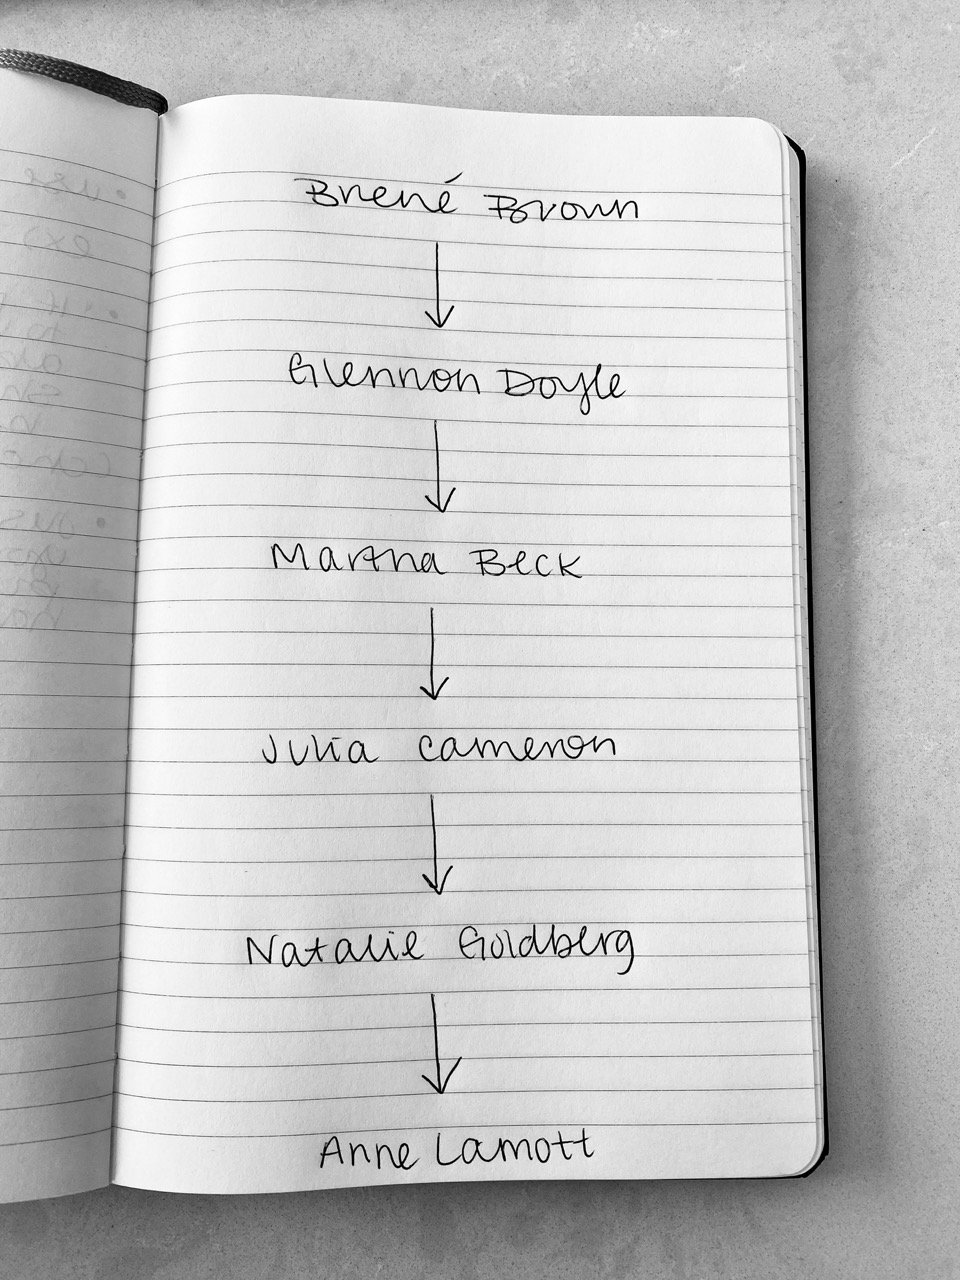 Brené Brown
Glennon Doyle
Martha Beck
Julia Cameron
Natalie Goldberg
Anne Lamott